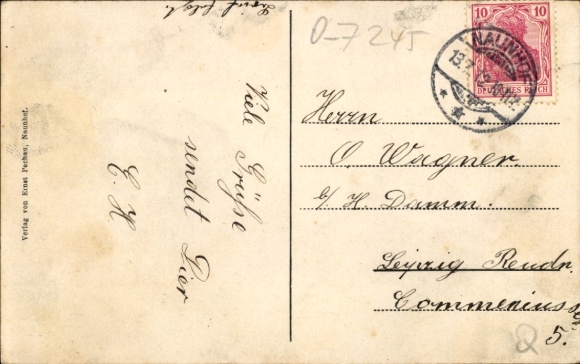 Brief folgt.
Viele Grüße
sendet Dir
E. H
Verlag von Ernst Pechau, Naunhof.
0-7245
10 10
DEUTSCHES REICH
NAUNHOF
Herrn
O. Wagner.
b/ H. Damm.
Leipzig Reudn.
Commeniusstr
5.